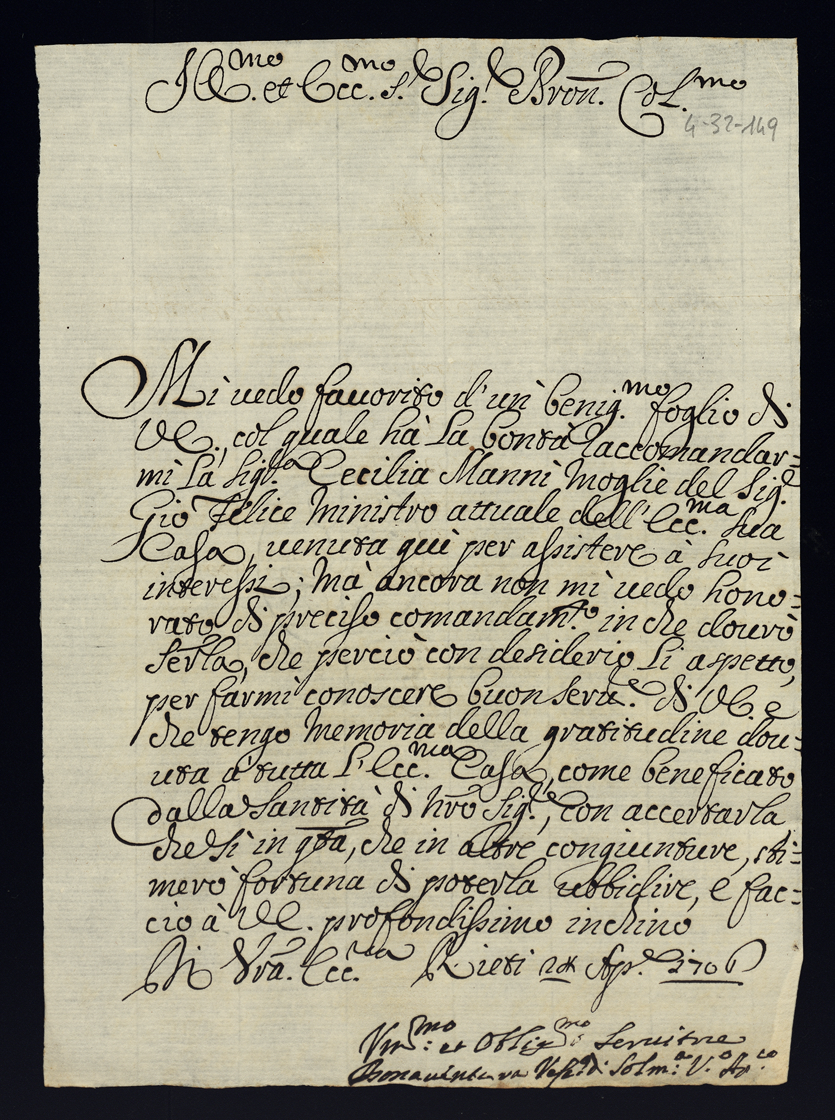 Ill.mo et Ecc.mo S.e Sig.e Pron. Col.mo
4-32-149
Mi uedo fauorito d'un benig.mo foglio di
VE., col quale hà la bontà raccomandar=
mi la Sig.ra Cecilia Manni Moglie del Sig.e
Gio Felice Ministro attuale dell'Ecc.ma sua
Casa, uenuta quì per assistere à suoi
interessi; mà ancora non mi uedo hono=
rato di preciso comandam.to in che dourò
serla, che perciò con desiderio li aspetto,
per farmi conoscere buon seru.e di VE e
che tengo memoria della gratitudine dou=
uta à tutta l'Ecc.ma Casa, come beneficato
dalla Santità di nrò Sig.e, con accertarla
che sì in qta, che in altre congiunture, sti=
merò fortuna di poterla ubbidire, e fac=
cio à VE. profondissimo inchino
Di Vrà. Ecc.za Rieti Ap.e 1706
Vm.mo et Oblig.mo Seruitre
Bonauintura V.o Ap.co